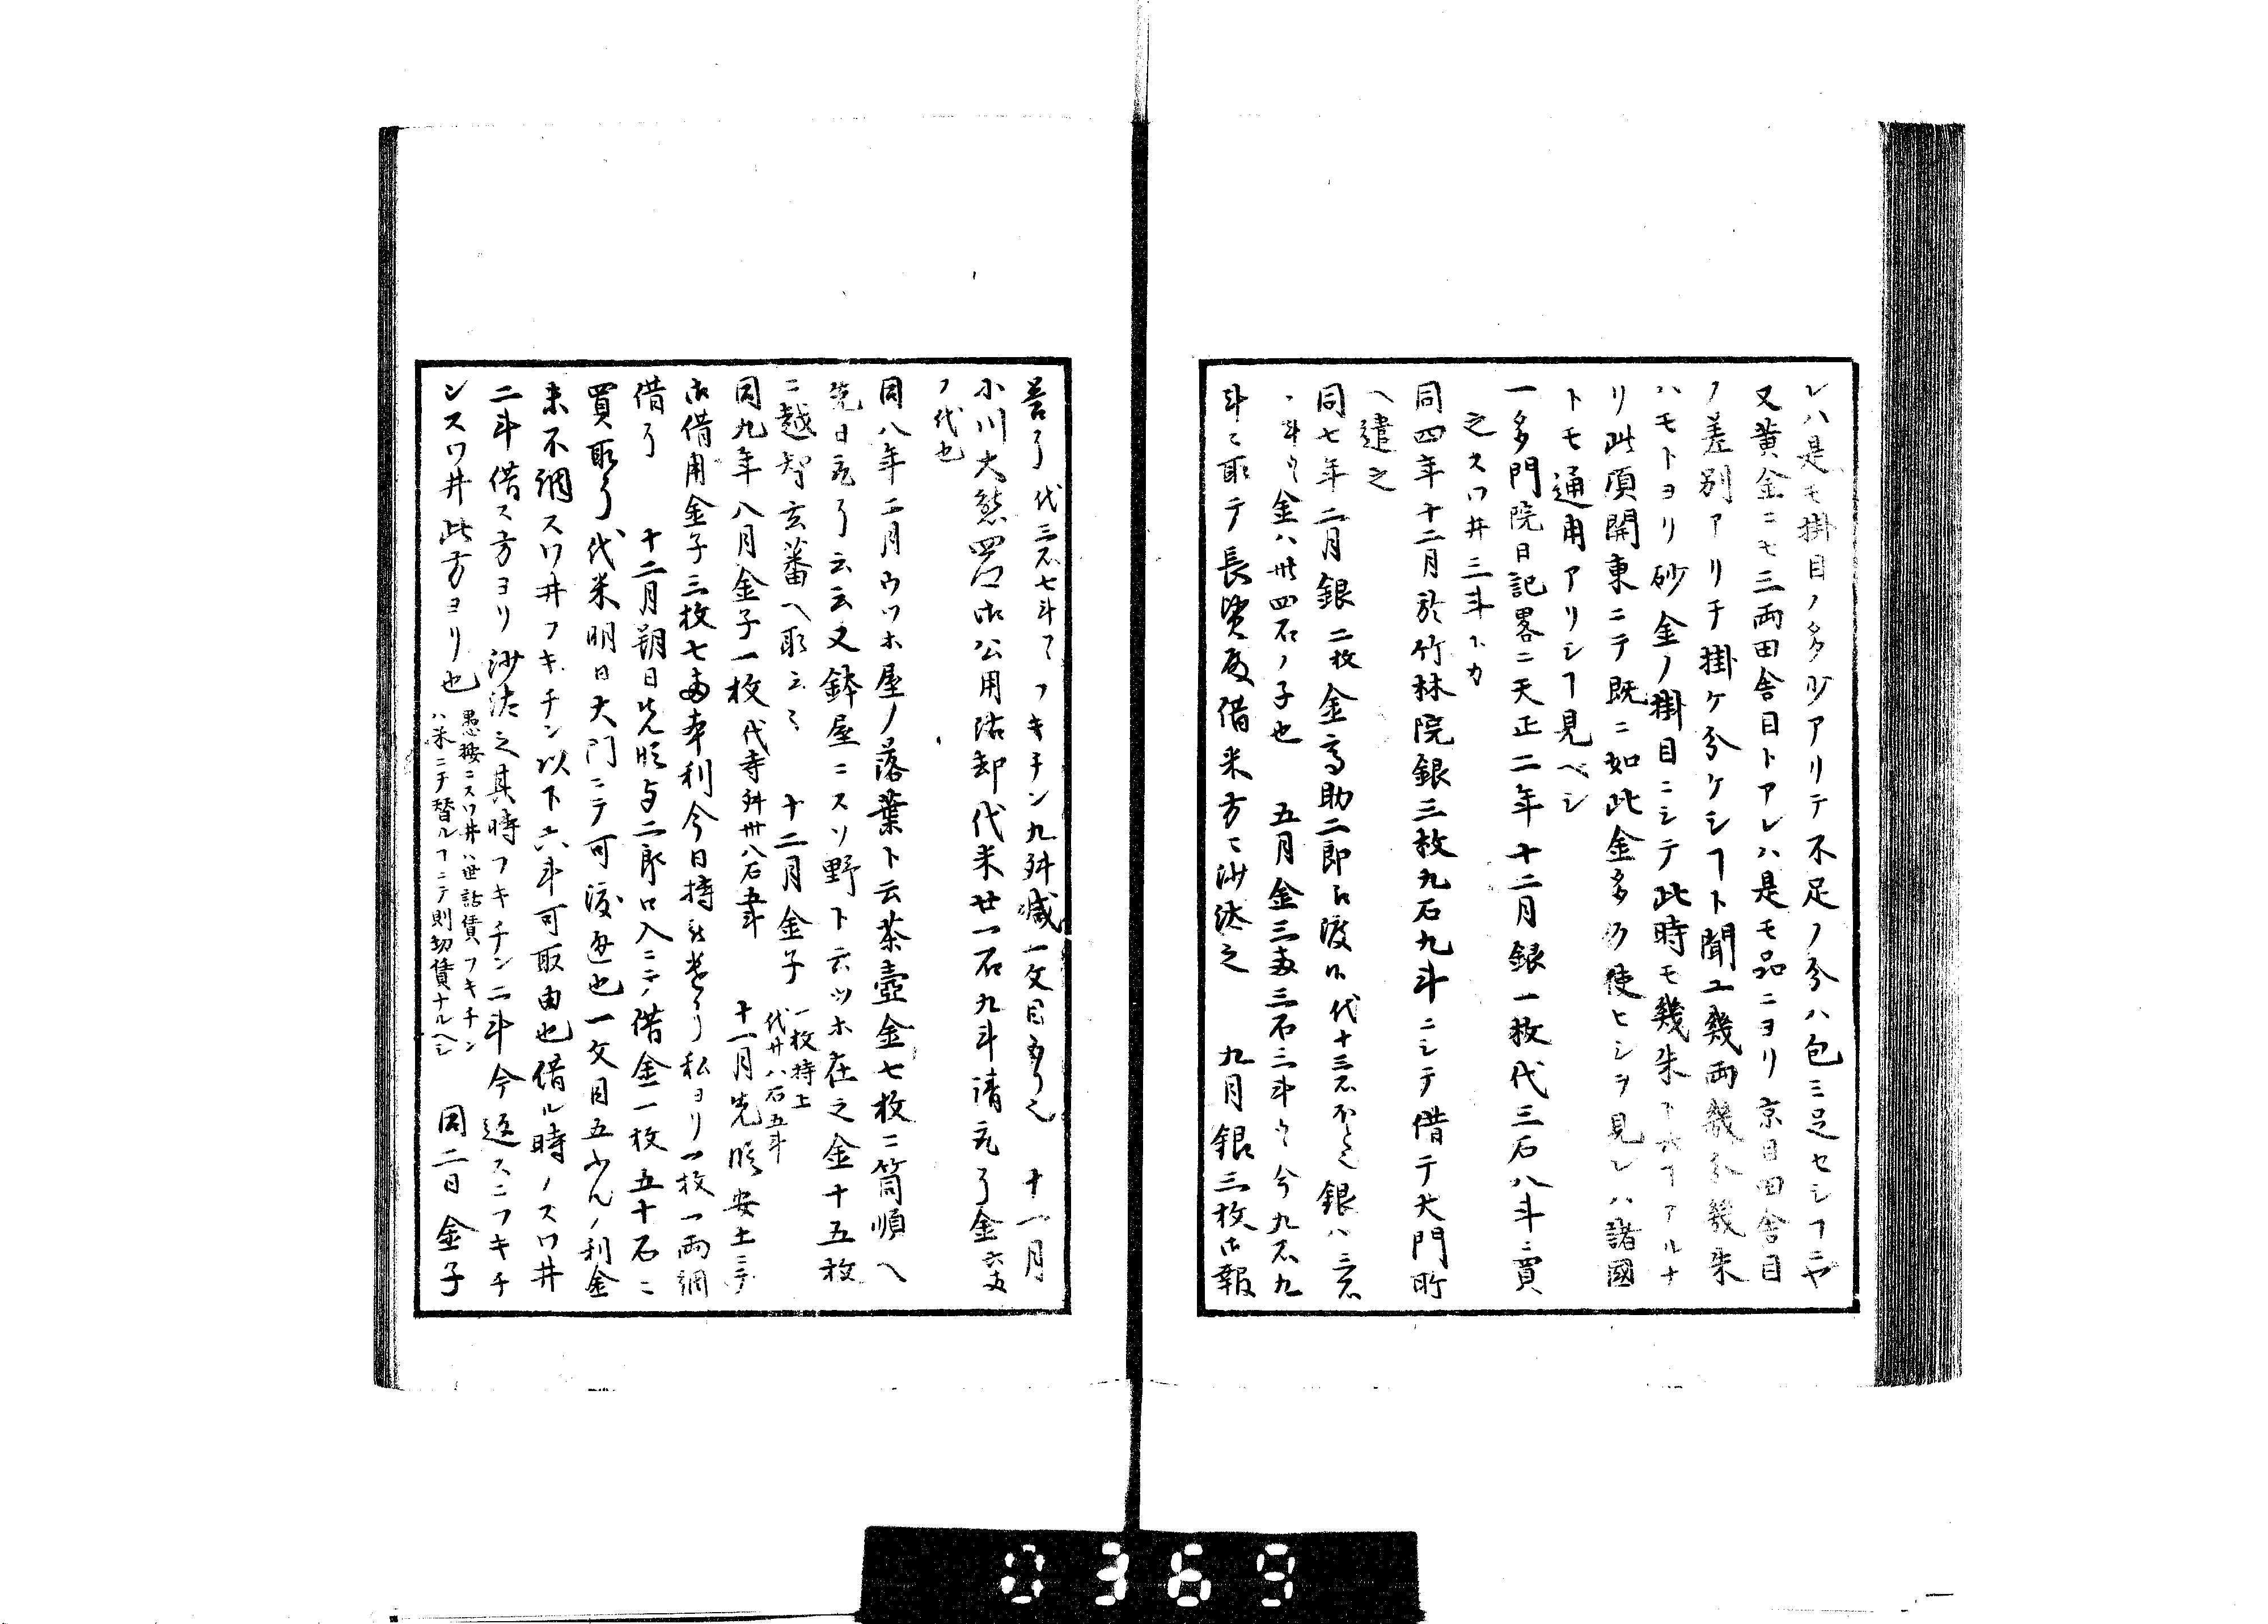 レハ是モ掛目ノ多少アリテ不足ノ分ハ包ミ足セシヿニヤ
又黄金ニモ三両田舎目トアレハ是モ品ニヨリ京目田舎目
ノ差別アリチ掛ケ分ケシヿト聞ユ幾両幾分幾朱
ハモトヨリ砂金ノ掛目ニシテ此時モ幾朱ト云ヿアルナ
リ此頃関東ニテ既ニ如此金多ク使ヒシヲ見レハ諸國
トモ通用アリシヿ見ヘシ
一多門院日記畧ニ天正二年十二月銀一枚代三石八斗ニ賣
之スワ井三斗下カ
同四年十二月於竹林院銀三枚九石九斗ニシテ借テ大門所
ヘ遣之
同七年二月銀二枚金 助二郎 渡 代十三石 銀ハ三石
金ハ卅四石ノ子也 五月金三両三石三斗ツヽ今九石九
斗ニ取テ長賢房借米方ニ沙汰之 九月銀三枚御報
替了代三石七斗 フキチン九舛減一文目 十一月
小川大熊 御公用沽却代米廿一石九斗請取了金六両
ノ代也
同八年二月ウツホ屋ノ落葉ト云茶壺金七枚ニ筒順ヘ
先日取了云云又鉢屋ニスリ野ト云ツホ在之金十五枚
ニ越智玄蕃ヘ取云々 十二月金子一枚持上代廿八石五斗
同九年八月金子一枚代寺舛卅八石五斗 十一月先 安土ニテ
御借用金子三枚七両本利今日持 私ヨリ一枚一両調
借了 十二月朔日先 与二郎口入ニテ借金一枚五十石ニ
買取了代米明日大門ニテ可渡 也一文目五分ノ利金
未不調スワ井フキチン以下六斗可取由也借ル時ノスワ井
二斗借ス方ヨリ沙汰之其時フキチン二斗今返スニフキチ
ンスワ井此方ヨリ也愚按ニスワ井ハ世話賃フキチン
ハ米ニテ替ルヿニテ則切賃ナルヘシ 同二日金子
0369